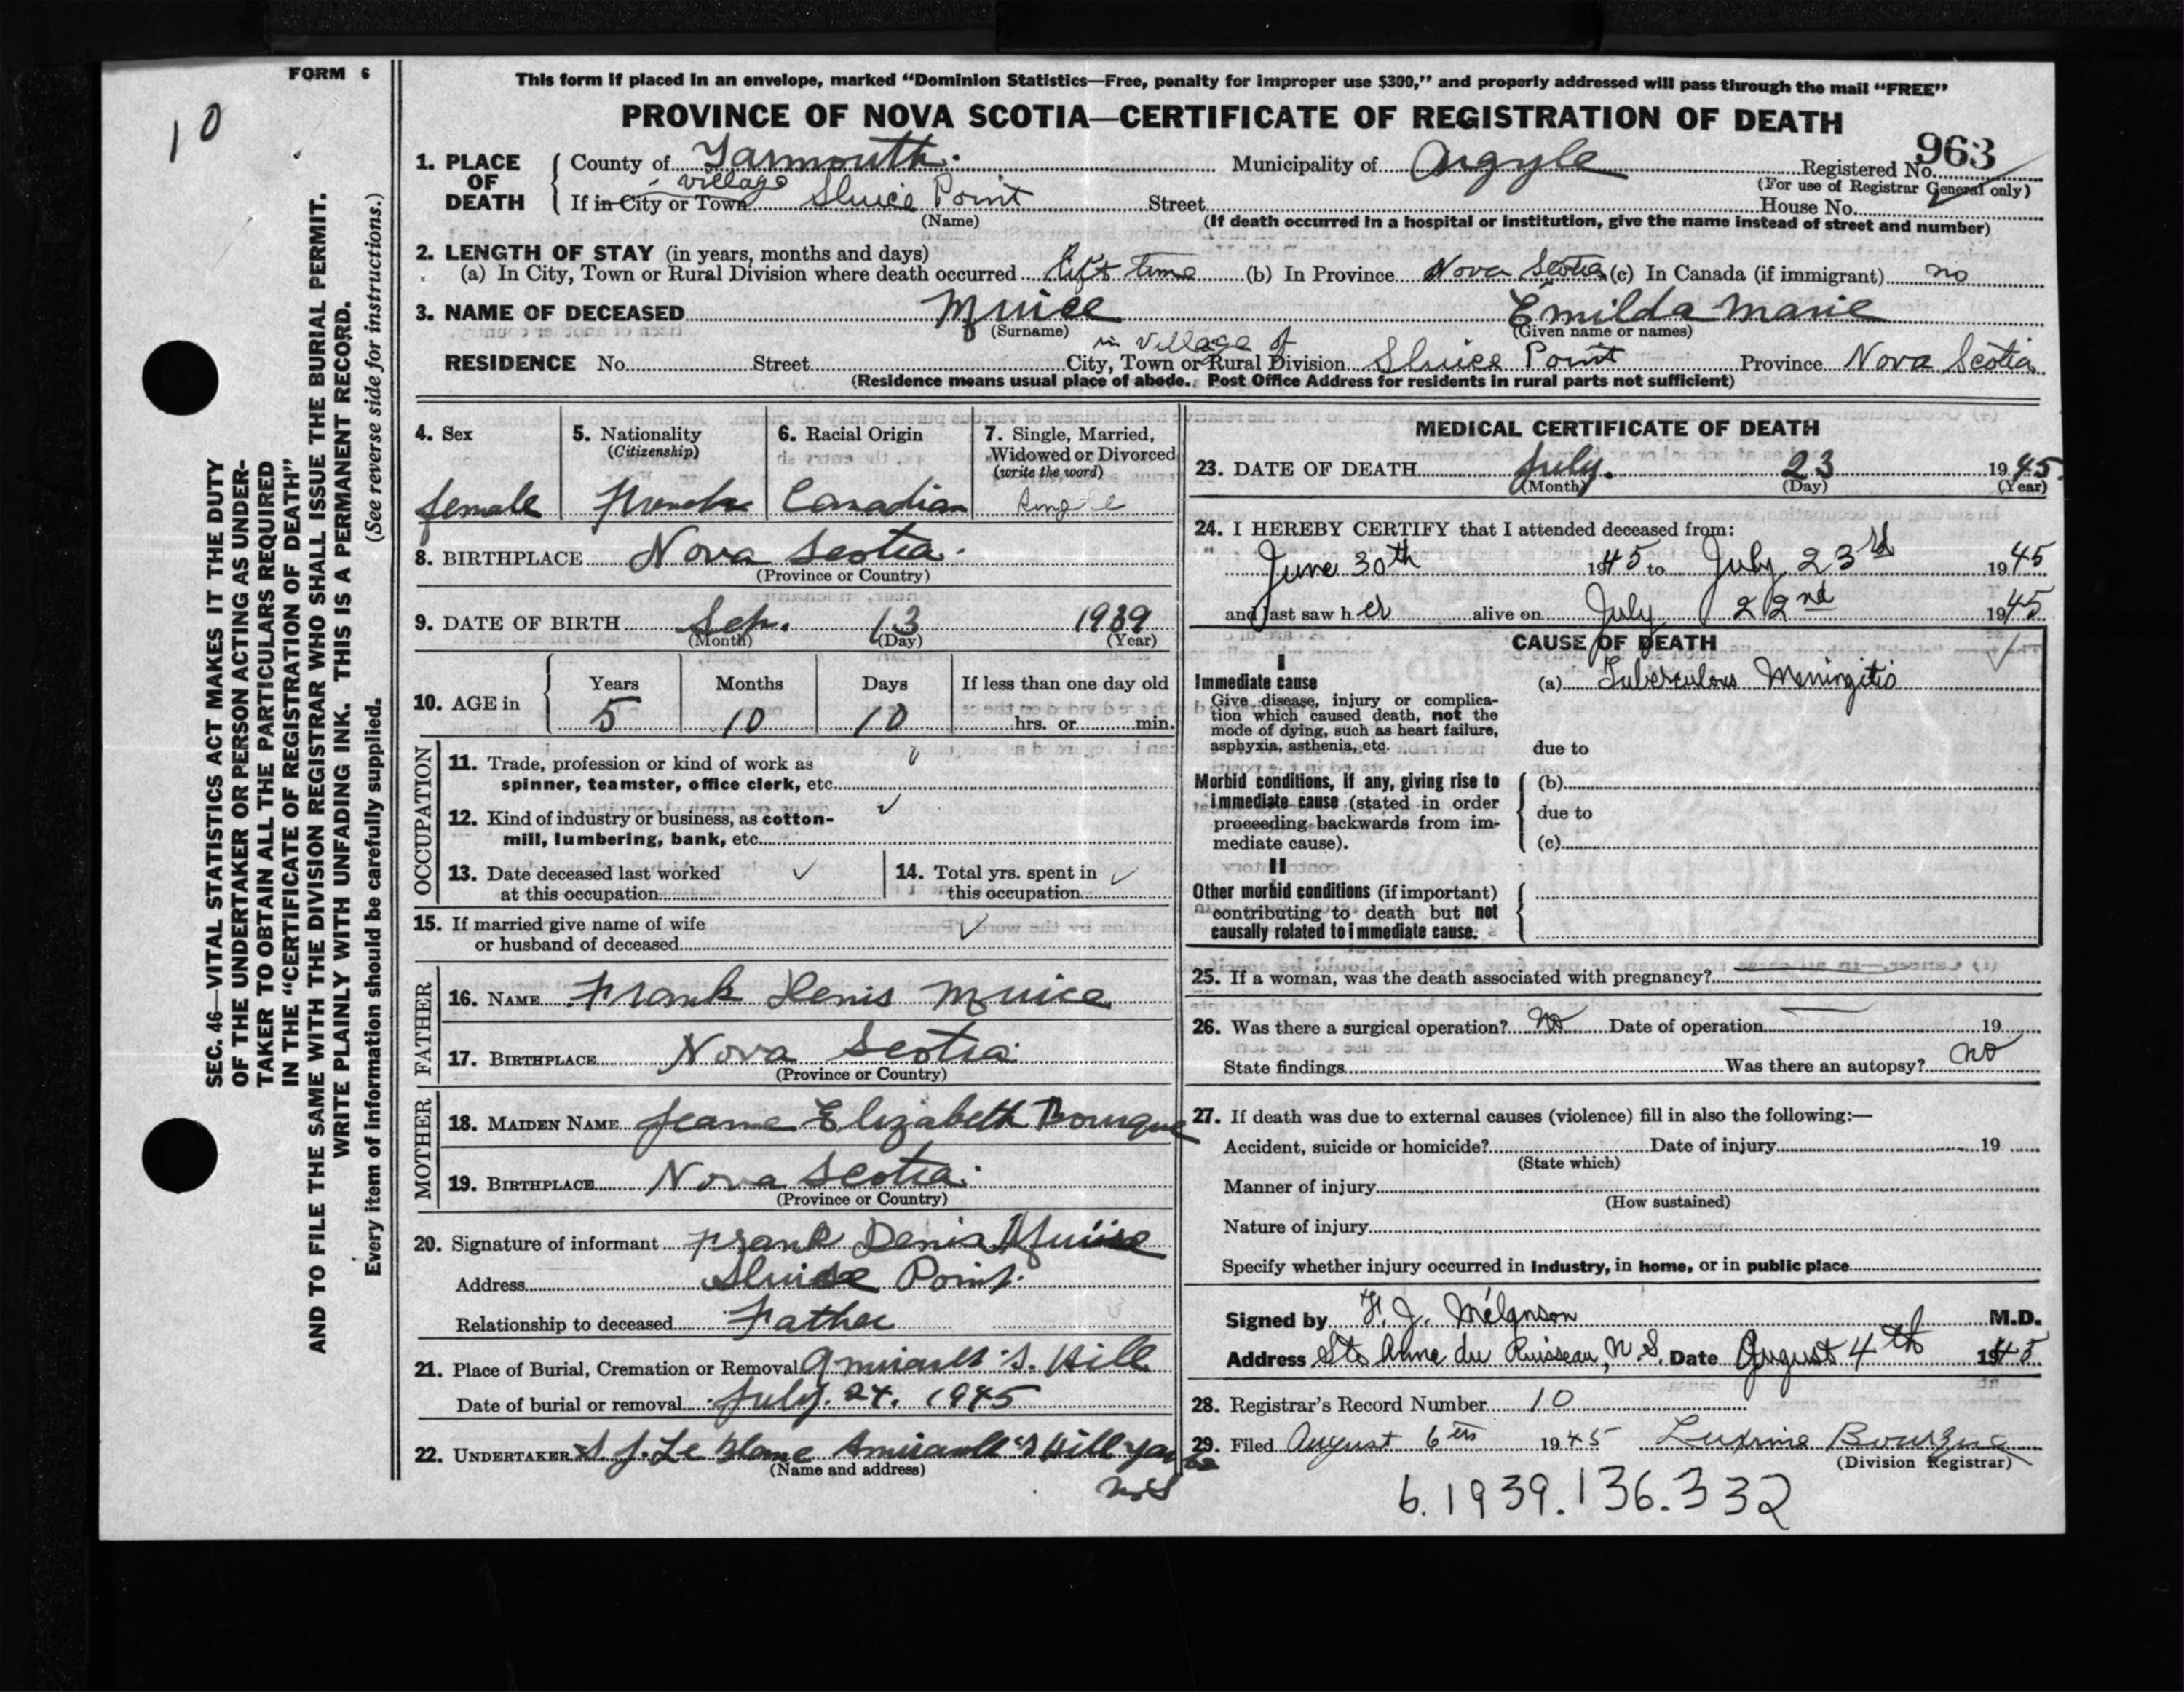 FORM 6
10
SEC. 46—VITAL STATISTICS ACT MAKES IT THE DUTY
OF THE UNDERTAKER OR PERSON ACTING AS UNDER-
TAKER TO OBTAIN ALL THE PARTICULARS REQUIRED
IN THE "CERTIFICATE OF REGISTRATION OF DEATH"
AND TO FILE THE SAME WITH THE DIVISION REGISTRAR WHO SHALL ISSUE THE BURIAL PERMIT.
WRITE PLAINLY WITH UNFADING INK. THIS IS A PERMANENT RECORD.
Every item of information should be carefully supplied. (See reverse side for instructions.)
This form if placed in an envelope, marked "Dominion Statistics—Free, penalty for improper use $300," and properly addressed will pass through the mail "FREE"
PROVINCE OF NOVA SCOTIA—CERTIFICATE OF REGISTRATION OF DEATH
963
1. PLACE OF DEATH County of Yarmouth. Municipality of Argyle Registered No.
(For use of Registrar General only)
village
If in City or Town Sluice Point Street House No.
(Name) (If death occurred in a hospital or institution, give the name instead of street and number)
2. LENGTH OF STAY (in years, months and days)
(a) In City, Town or Rural Division where death occurred life time (b) In Province Nova Scotia (c) In Canada (if immigrant) no
3. NAME OF DECEASED Muice Emilda Marie
(Surname) (Given name or names)
in village of
RESIDENCE No. Street City, Town or Rural Division Sluice Point Province Nova Scotia
(Residence means usual place of abode. Post Office Address for residents in rural parts not sufficient)
4. Sex female
5. Nationality (Citizenship) French
6. Racial Origin Canadian
7. Single, Married, Widowed or Divorced (write the word) Single
8. BIRTHPLACE Nova Scotia.
(Province or Country)
9. DATE OF BIRTH Sep. 13 1939
(Month) (Day) (Year)
10. AGE in Years Months Days If less than one day old
5 10 10 hrs. or min.
OCCUPATION
11. Trade, profession or kind of work as
spinner, teamster, office clerk, etc.
12. Kind of industry or business, as cotton-
mill, lumbering, bank, etc.
13. Date deceased last worked
at this occupation
14. Total yrs. spent in
this occupation
15. If married give name of wife
or husband of deceased
FATHER
16. NAME Frank Denis Muice
17. BIRTHPLACE Nova Scotia
(Province or Country)
MOTHER
18. MAIDEN NAME Jeanne Elizabeth Bourque
19. BIRTHPLACE Nova Scotia.
(Province or Country)
20. Signature of informant Frank Denis Muise
Address Sluice Point.
Relationship to deceased Father
21. Place of Burial, Cremation or Removal Amirault's Hill
Date of burial or removal July. 24. 1945
22. UNDERTAKER S J. Le Blanc Amirault's Hill Yar Co
(Name and address)
N.S
MEDICAL CERTIFICATE OF DEATH
23. DATE OF DEATH July. 23 1945
(Month) (Day) (Year)
24. I HEREBY CERTIFY that I attended deceased from:
June 30th 1945 to July 23rd 1945
and last saw her alive on July 22nd 1945
CAUSE OF DEATH
I
Immediate cause
Give disease, injury or complica-
tion which caused death, not the
mode of dying, such as heart failure,
asphyxia, asthenia, etc.
(a) Tuberculous Meningitis
due to
Morbid conditions, if any, giving rise to
immediate cause (stated in order
proceeding backwards from im-
mediate cause).
(b)
due to
(c)
II
Other morbid conditions (if important)
contributing to death but not
causally related to immediate cause.
25. If a woman, was the death associated with pregnancy?
26. Was there a surgical operation? No Date of operation 19
State findings Was there an autopsy? no
27. If death was due to external causes (violence) fill in also the following:—
Accident, suicide or homicide? Date of injury 19
(State which)
Manner of injury
(How sustained)
Nature of injury
Specify whether injury occurred in industry, in home, or in public place
Signed by F. J. Mélanson M.D.
Address Ste Anne du Ruisseau, N.S. Date August 4th 1945
28. Registrar's Record Number 10
29. Filed August 6th 1945 Bourque
(Division Registrar)
6.1939.136.332